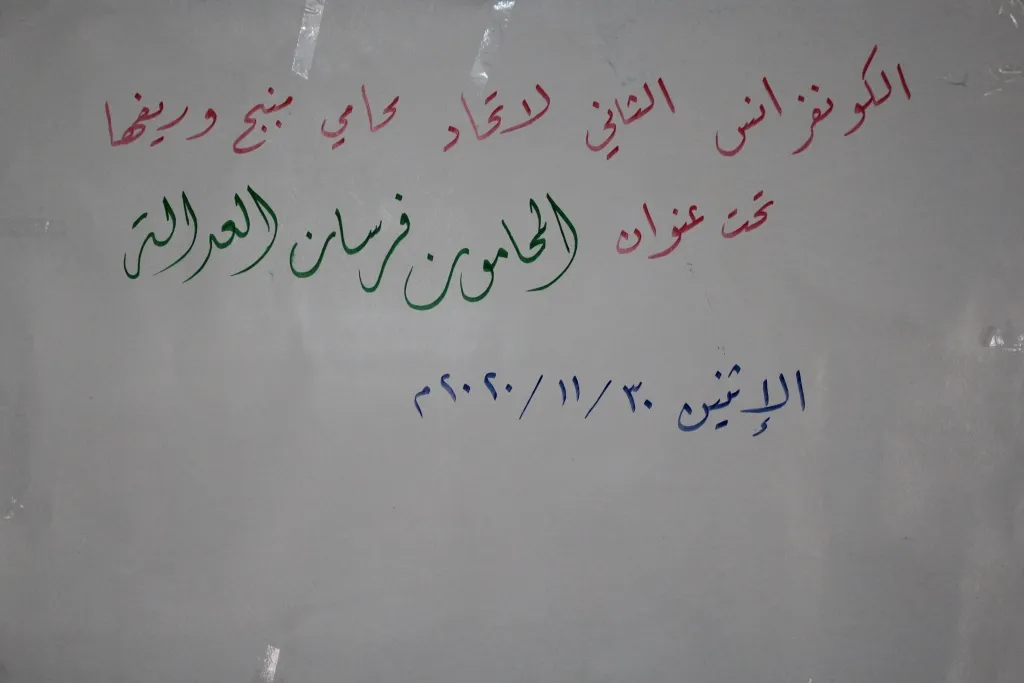 الكونفرانس الثاني لاتحاد محامي منبج وريفها
تحت عنوان المحامون فرسان العدالة
الإثنين ٣٠/١١/٢٠٢٠م